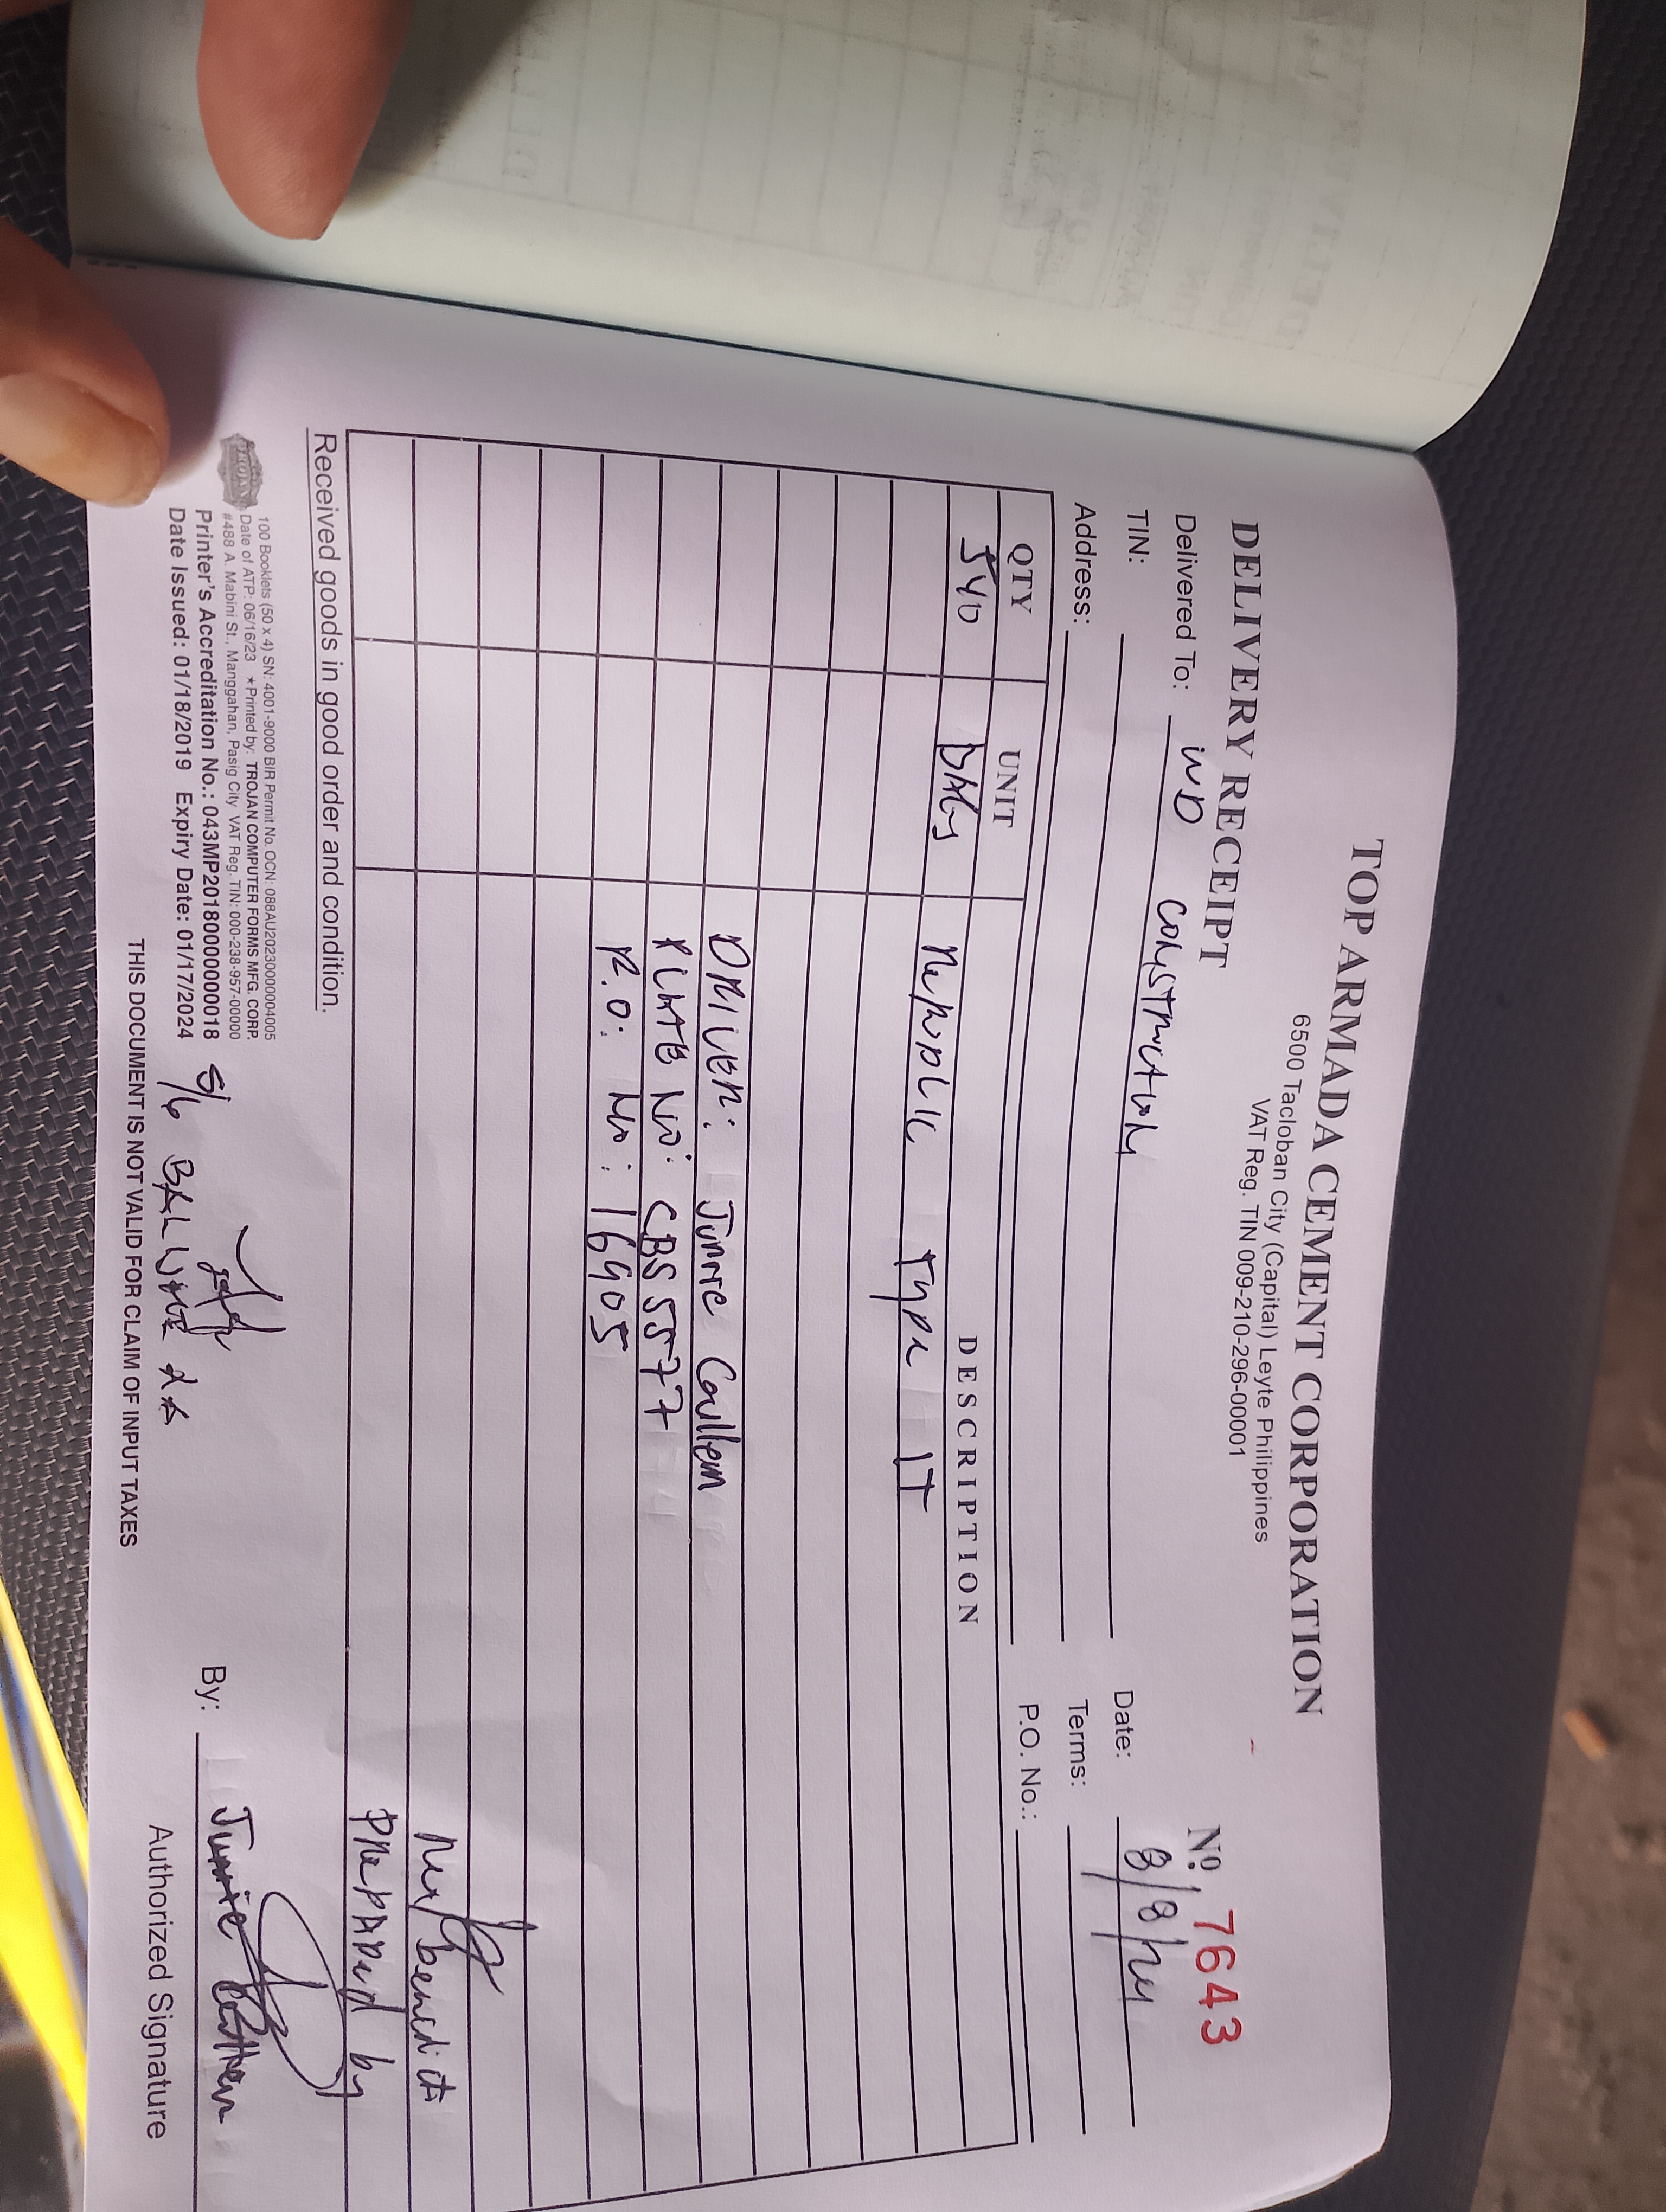 TOP ARMADA CEMENT CORPORATION
6500 Tacloban City (Capital) Leyte Philippines
VAT Reg. TIN 009-210-296-00001
DELIVERY RECEIPT
Nº 7643
Delivered To: WD CONSTRUCTION
Date: 8/8/24
TIN:
Terms:
Address:
P.O. No.:
QTY UNIT DESCRIPTION
540 BAGS Republic Type 1T
DRIVER: Junrie Coullem
PLATE NO: CBS 5577
P.O: No: 16905
benedict
PREPARED by
Received goods in good order and condition.
TROJAN
100 Booklets (50 x 4) SN: 4001-9000 BIR Permit No. OCN: 088AU20230000004005
Date of ATP: 06/16/23 ★Printed by: TROJAN COMPUTER FORMS MFG. CORP.
#488 A. Mabini St., Manggahan, Pasig City VAT Reg. TIN: 000-238-957-00000
Printer's Accreditation No.: 043MP20180000000018
Date Issued: 01/18/2019 Expiry Date: 01/17/2024
S/G
By: Junrie
Authorized Signature
THIS DOCUMENT IS NOT VALID FOR CLAIM OF INPUT TAXES